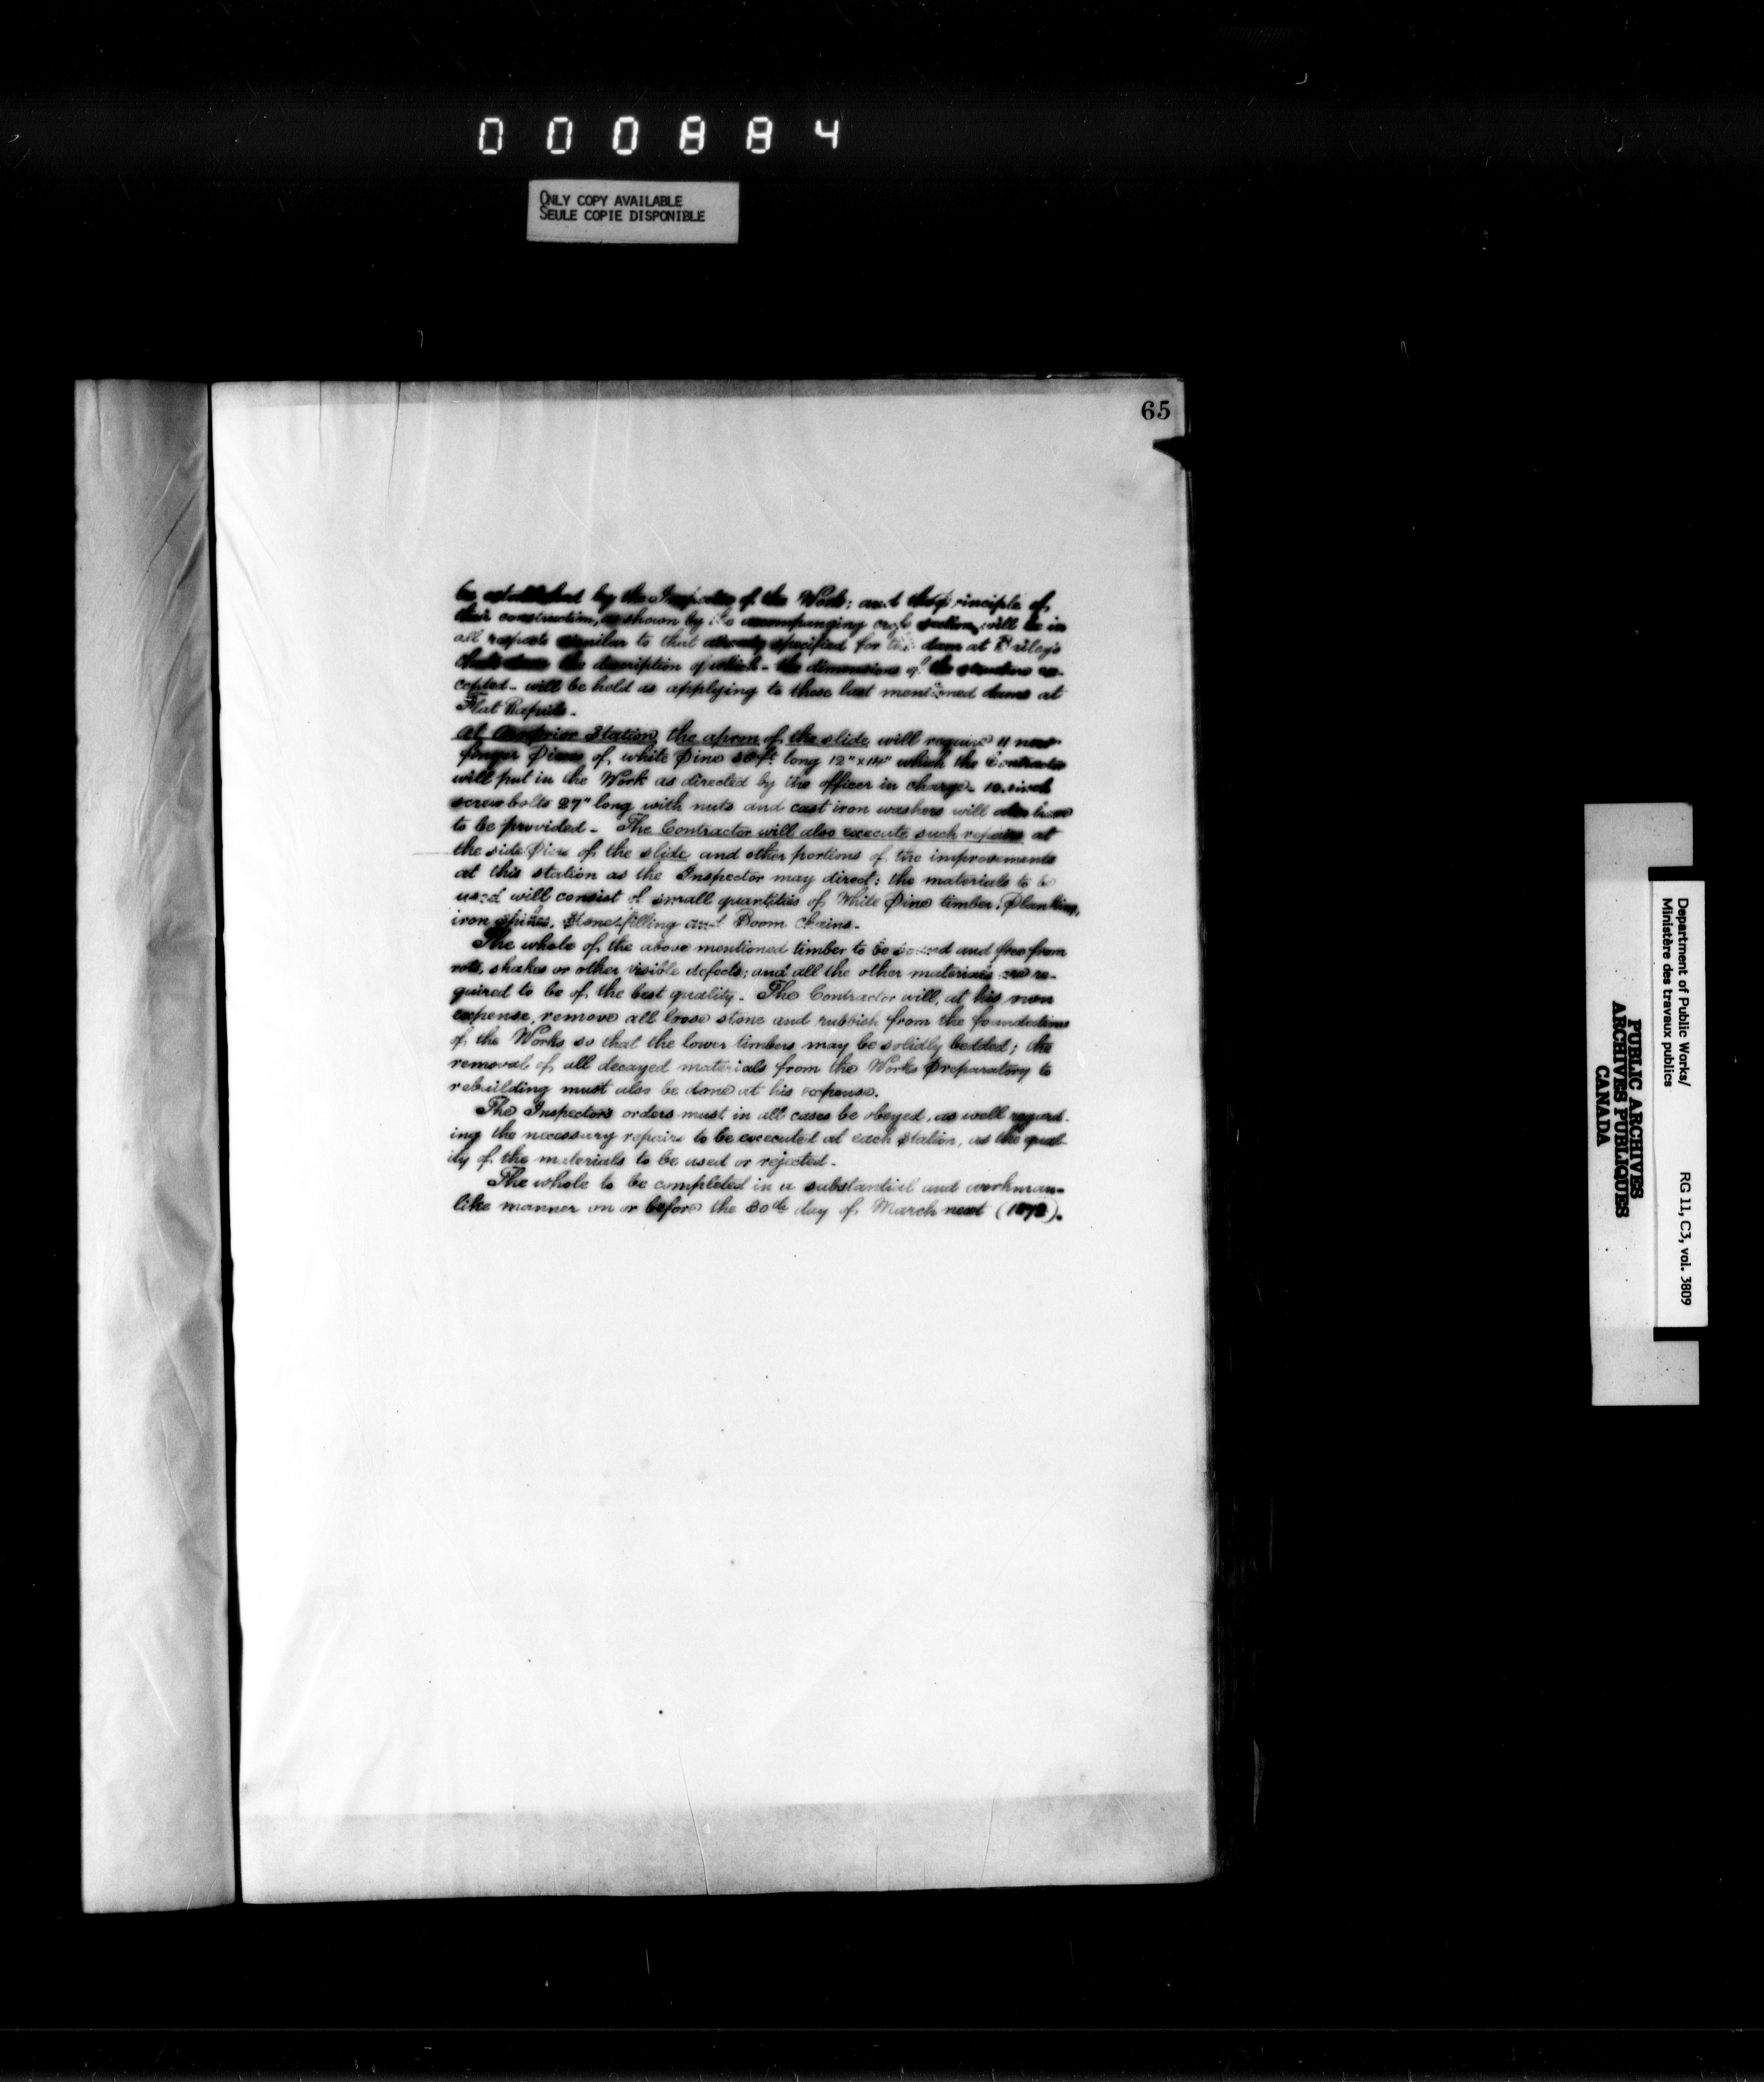 000884
ONLY COPY AVAILABLE
SEULE COPIE DISPONIBLE
65
be established by the Inspector of the Work; and the principle of
their construction, as shown by the accompanying cross section, will be in
all respects similar to that already specified for the dam at Briley's
the description of which - the dimensions of the ex-
cepted - will be held as applying to these last mentioned dams at
Flat Rapids -
At Arnprior Station, the apron of the slide will require 11 new
finger Pieces of white Pine long 12" x 14" which the Contractor
will put in the Work as directed by the officer in charge - 10. inch
screw bolts 27" long with nuts and cast iron washers will also have
to be provided - The Contractor will also execute such repairs at
the side Piers of the slide and other portions of the improvements
at this station as the Inspector may direct: the materials to be
used will consist of small quantities of White Pine timber, Planking,
iron spikes, Stone-filling and Boom Chains -
The whole of the above mentioned timber to be sound and free from
rots, shakes or other visible defects; and all the other materials are re-
quired to be of the best quality - The Contractor will, at his own
expense, remove all loose stone and rubbish from the foundations
of the Works so that the lower timbers may be solidly bedded; the
removal of all decayed materials from the Works Preparatory to
rebuilding must also be done at his expense.
The Inspector's orders must in all cases be obeyed, as well regard-
ing the necessary repairs to be executed at each Station, as the qual-
ity of the materials to be used or rejected -
The whole to be completed in a substantial and workman-
like manner on or before the 30th day of March next (1872).
Department of Public Works/
Ministère des travaux publics
RG 11, C3, vol. 3809
PUBLIC ARCHIVES
ARCHIVES PUBLIQUES
CANADA